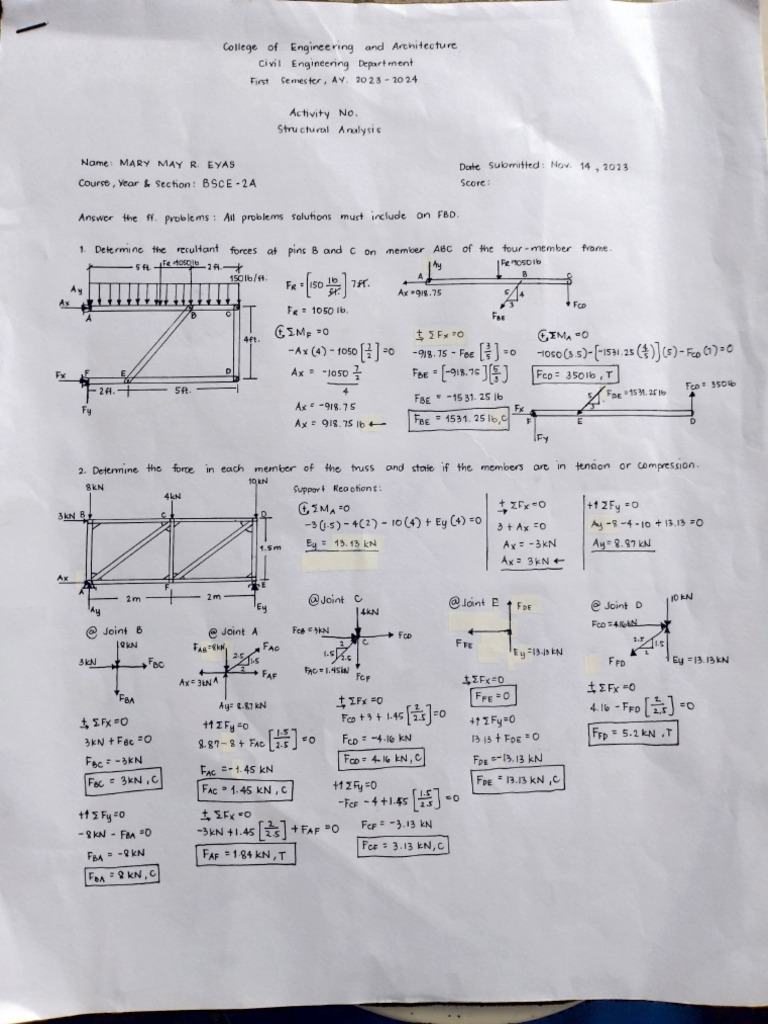 College of Engineering and Architecture
Civil Engineering Department
First Semester, AY. 2023 - 2024
Activity No.
Structural Analysis
Name: MARY MAY R. EYAS
Date Submitted: Nov. 14, 2023
Course, Year & Section: BSCE - 2A
Score:
Answer the ff. problems: All problems solutions must include an FBD.
1. Determine the resultant forces at pins B and C on member ABC of the four-member frame.
5 ft. FR = 1050 lb 2 ft.
150 lb/ft.
Ay
Ax
A
B
C
4ft.
Fx
F
E
D
2 ft.
5 ft.
Fy
FR = [150 lb/ft.] 7 ft.
FR = 1050 lb.
ΣMF = 0
-Ax (4) - 1050 [7/2] = 0
Ax = -1050 7/2 / 4
Ax = -918.75
Ax = 918.75 lb ←
Ay
FR = 1050 lb
A
B
C
Ax = 918.75
5
4
3
FBE
FCD
ΣFx = 0
-918.75 - FBE [3/5] = 0
FBE = [-918.75] [5/3]
FBE = -1531.25 lb
FBE = 1531.25 lb, C
ΣMA = 0
-1050 (3.5) - [-1531.25 (4/5)] (5) - FCD (7) = 0
FCD = 350 lb, T
FCD = 350 lb
5
3
FBE = 1531.25 lb
Fx
F
E
D
Fy
2. Determine the force in each member of the truss and state if the members are in tension or compression.
8 kN
4 kN
10 kN
3 kN
B
C
D
1.5m
Ax
A
F
E
Ay
2m
2m
Ey
Support Reactions:
ΣMA = 0
-3 (1.5) - 4 (2) - 10 (4) + Ey (4) = 0
Ey = 13.13 kN
ΣFx = 0
3 + Ax = 0
Ax = -3kN
Ax = 3 kN ←
+↑ΣFy = 0
Ay - 8 - 4 - 10 + 13.13 = 0
Ay = 8.87 kN
@ Joint B
8kN
3kN
FBC
FBA
ΣFx = 0
3kN + FBC = 0
FBC = -3kN
FBC = 3 kN, C
+↑ΣFy = 0
-8 kN - FBA = 0
FBA = -8 kN
FBA = 8 kN, C
@ Joint A
FAB = 8kN
FAC
2.5
1.5
2
Ax = 3kN
A
FAF
Ay = 8.87 kN
+↑ΣFy = 0
8.87 - 8 + FAC [1.5/2.5] = 0
FAC = -1.45 kN
FAC = 1.45 kN, C
ΣFx = 0
-3kN + 1.45 [2/2.5] + FAF = 0
FAF = 1.84 kN, T
@ Joint C
4kN
FCB = 3kN
FCD
C
2
1.5
2.5
FAC = 1.45kN
FCF
ΣFx = 0
FCD + 3 + 1.45 [2/2.5] = 0
FCD = -4.16 kN
FCD = 4.16 kN, C
+↑ΣFy = 0
-FCF - 4 + 1.45 [1.5/2.5] = 0
FCF = -3.13 kN
FCF = 3.13 kN, C
@ Joint E
FDE
FFE
Ey = 13.13 kN
ΣFx = 0
FFE = 0
+↑ΣFy = 0
13.13 + FDE = 0
FDE = -13.13 kN
FDE = 13.13 kN, C
@ Joint D
10 kN
FCD = 4.16 kN
2.5
1.5
2
FFD
Ey = 13.13 kN
ΣFx = 0
4.16 - FFD [2/2.5] = 0
FFD = 5.2 kN, T